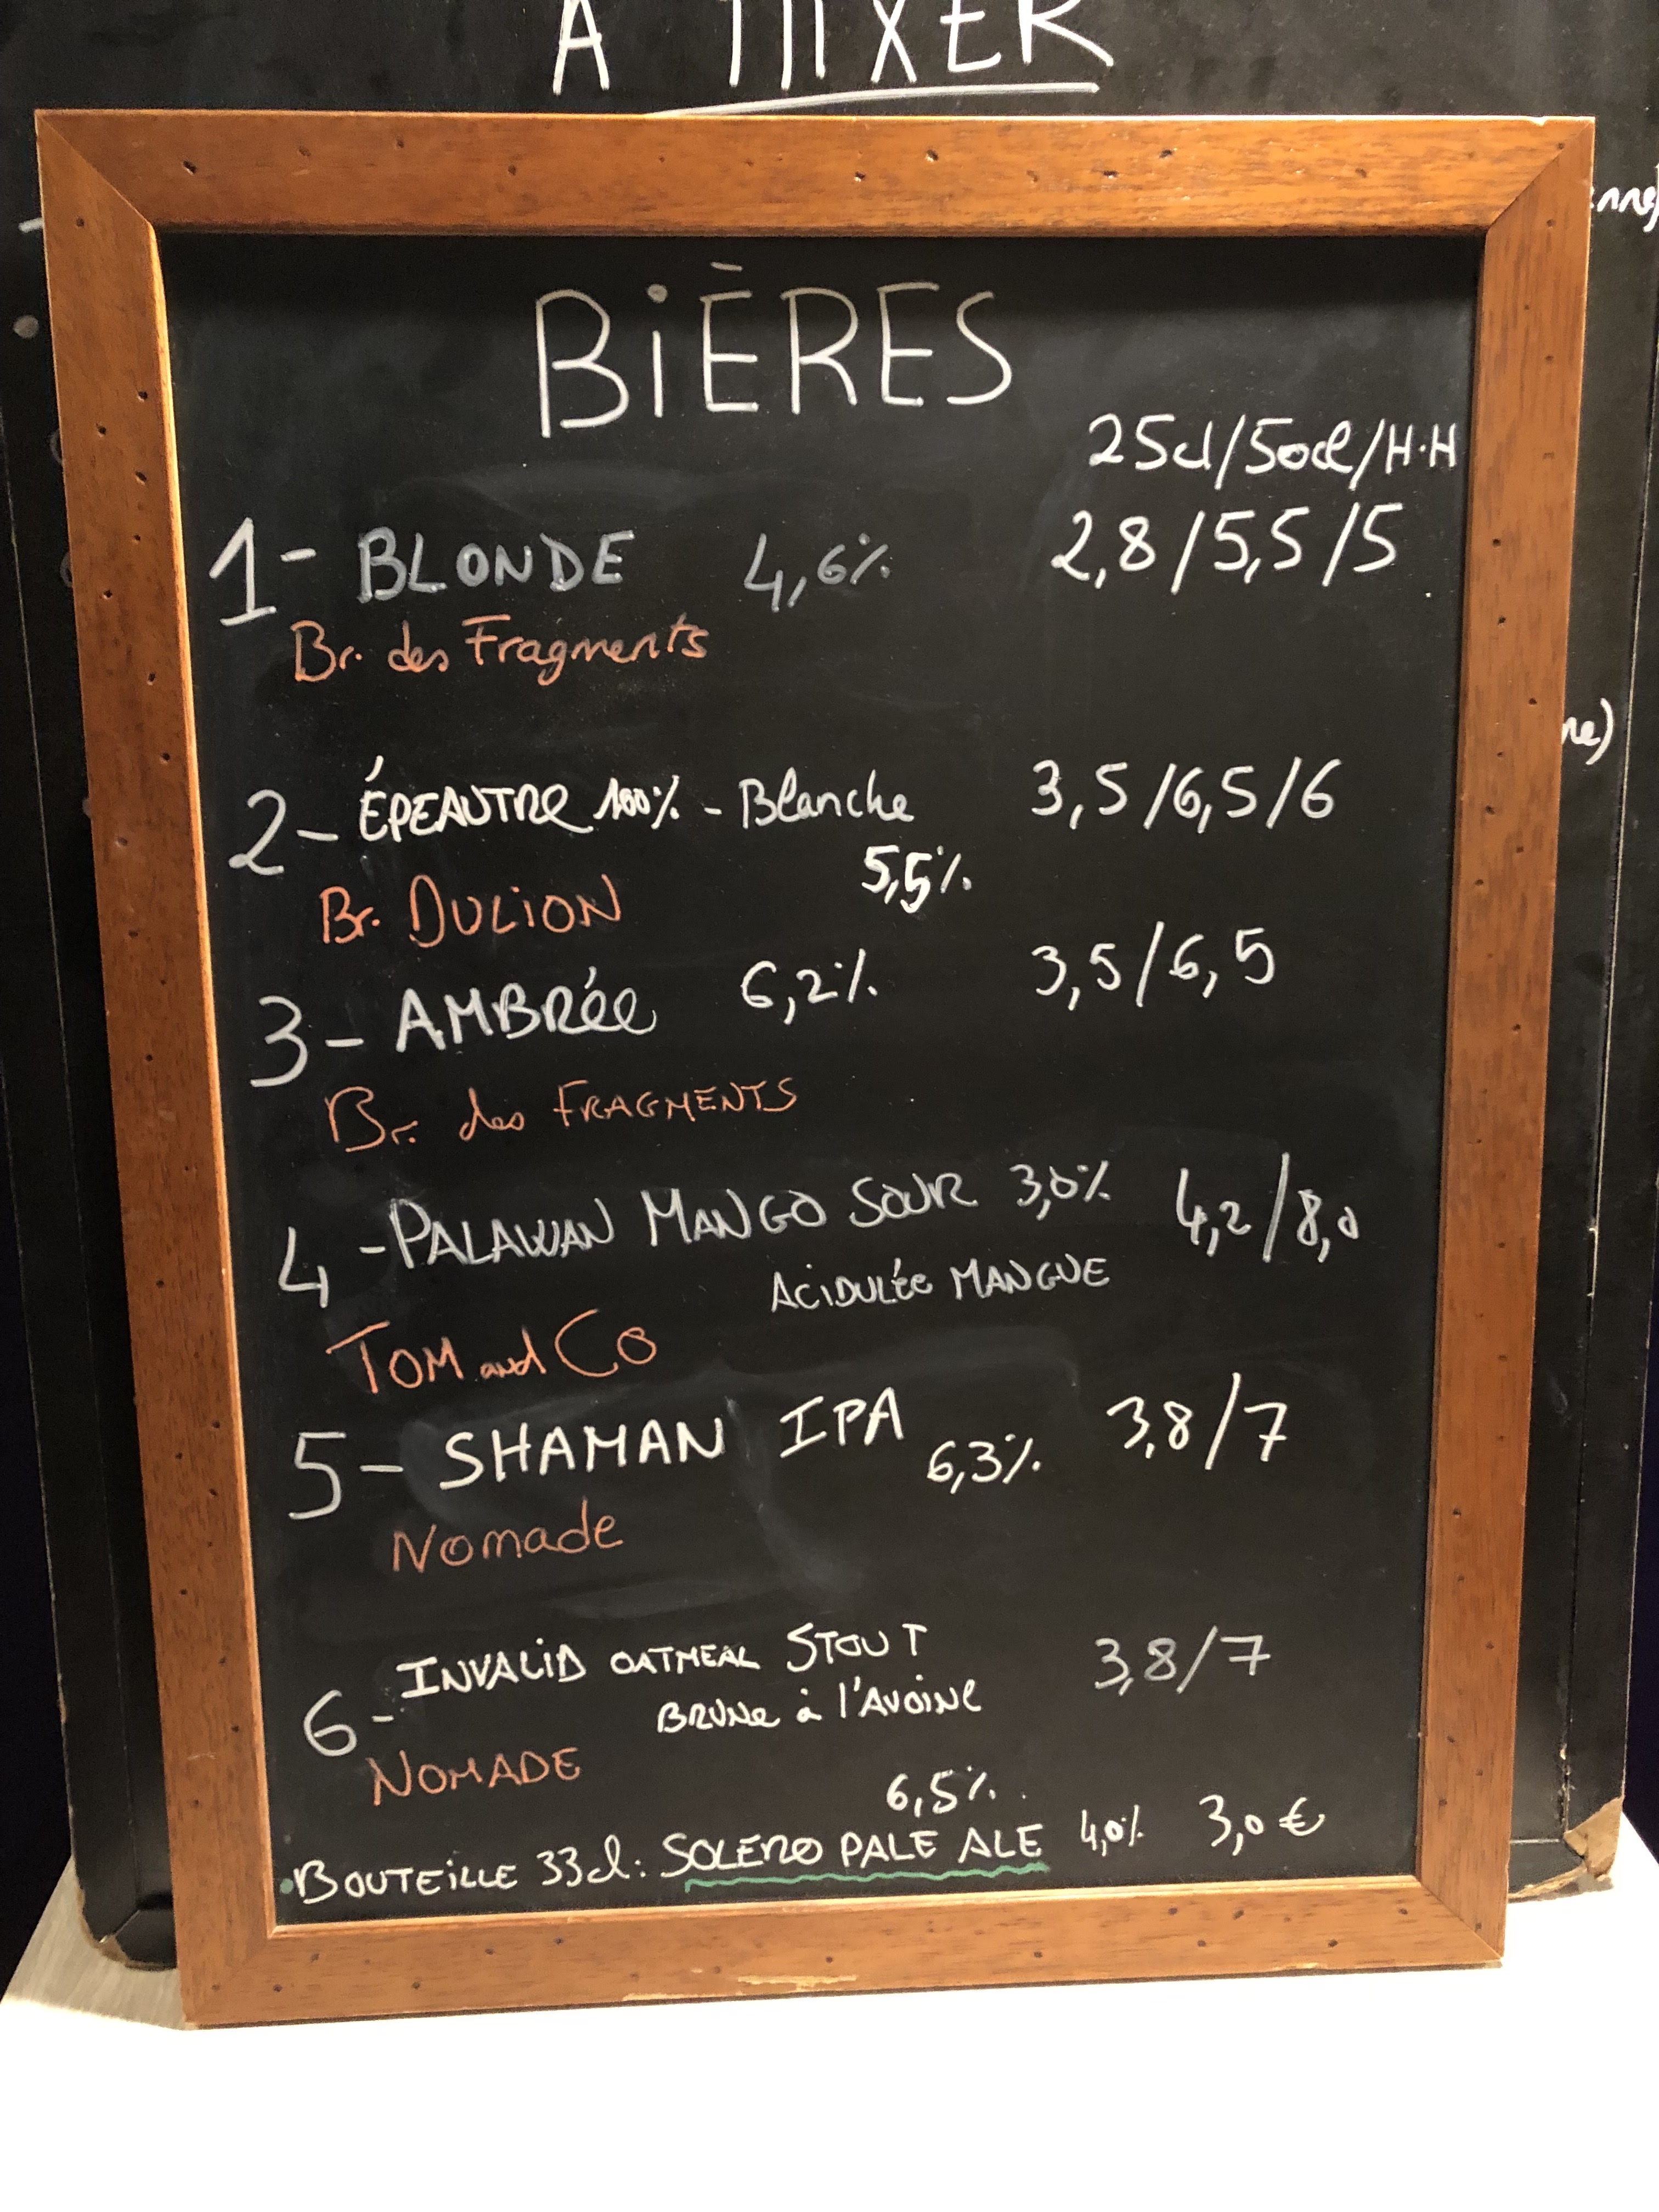 A MIXER
BIÈRES
25cl/50cl/H.H
1- BLONDE 4,6% 2,8/5,5/5
Br. des Fragments
2- ÉPEAUTRE 100% - Blanche 3,5/6,5/6
5,5%
Br. DULION
3- AMBRÉE 6,2% 3,5/6,5
Br. des FRAGMENTS
4- PALAWAN MANGO SOUR 3,0% 4,2/8,0
ACIDULÉE MANGUE
TOM and CO
5- SHAMAN IPA 6,3% 3,8/7
Nomade
6- INVALID OATMEAL STOUT 3,8/7
BRUNE à l'AVOINE
NOMADE
6,5%
BOUTEILLE 33cl: SOLERO PALE ALE 4,0% 3,0€